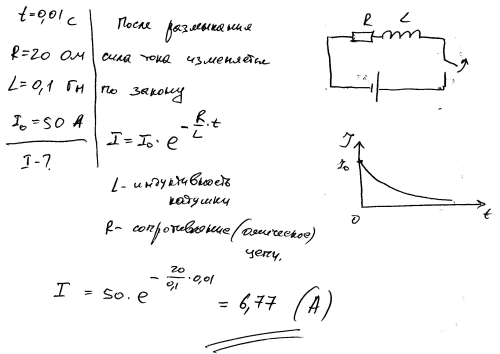 t=0,01 с
R=20 Ом
L=0,1 Гн
I₀=50 А
I-?
После размыкания
сила тока изменяется
по закону
I = I₀ · e^(-R/L · t)
L- индуктивность
катушки
R- сопротивление (омическое)
цепи.
I = 50 · e^(-20/0,1 · 0,01) = 6,77 (А)
R L
I
I₀
0
t